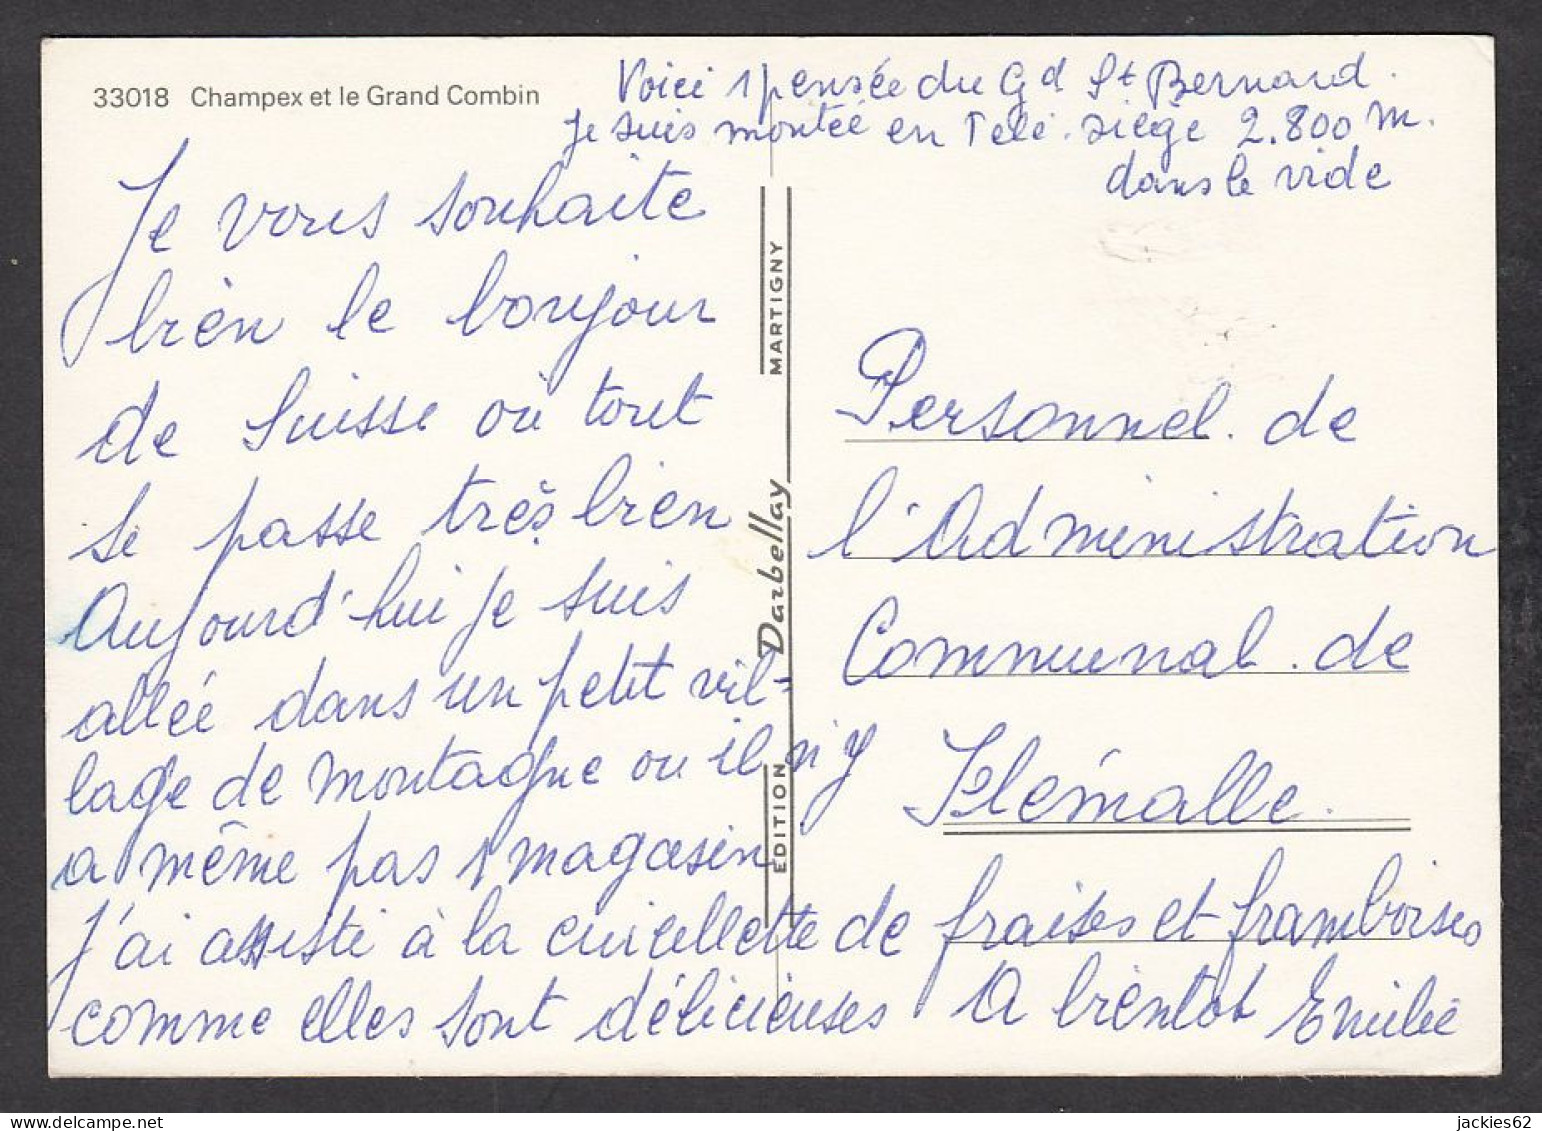 33018 Champex et le Grand Combin
Voici 1 pensée du Gd St Bernard.
Je suis montée en Télé. siège 2.800 m.
dans le vide
Je vous souhaite
bien le bonjour
de Suisse où tout
se passe très bien
Aujourd'hui je suis
allée dans un petit vil=
lage de montagne ou il n'y
a même pas 1 magasin
J'ai assisté à la cuiellette de fraises et framboises
comme elles sont délicieuses A bientot Emilie
EDITION Darbellay MARTIGNY
Personnel de
l'Administration
Communal de
Flémalle.
jackies62